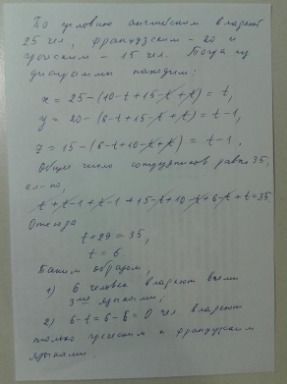 По условию английским владеют
25 чел, французским - 20 и
греческим - 15 чел. Тогда из
диаграммы находим:
x = 25 - (10 - t + 15 - t + t) = t,
y = 20 - (6 - t + 15 - t + t) = t - 1,
z = 15 - (6 - t + 10 - t + t) = t - 1.
Общее число сотрудников равно 35,
t + t - 1 + t - 1 + 15 - t + 10 - t + 6 - t + t = 35
Отсюда
t + 29 = 35,
t = 6
Таким образом,
1) 6 человек владеют всеми
3мя языками;
2) 6 - t = 6 - 6 = 0 чел. владеют
только греческим и французским
языками.